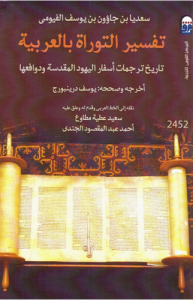 سعديا بن جاؤون بن يوسف الفيومى
تفسير التوراة بالعربية
تاريخ ترجمات أسفار اليهود المقدسة ودوافعها
أخرجه وصححه: يوسف درينبورج
نقله إلى الخط العربى وقدم له وعلق عليه
سعيد عطية مطاوع
أحمد عبد المقصود الجندى
2452